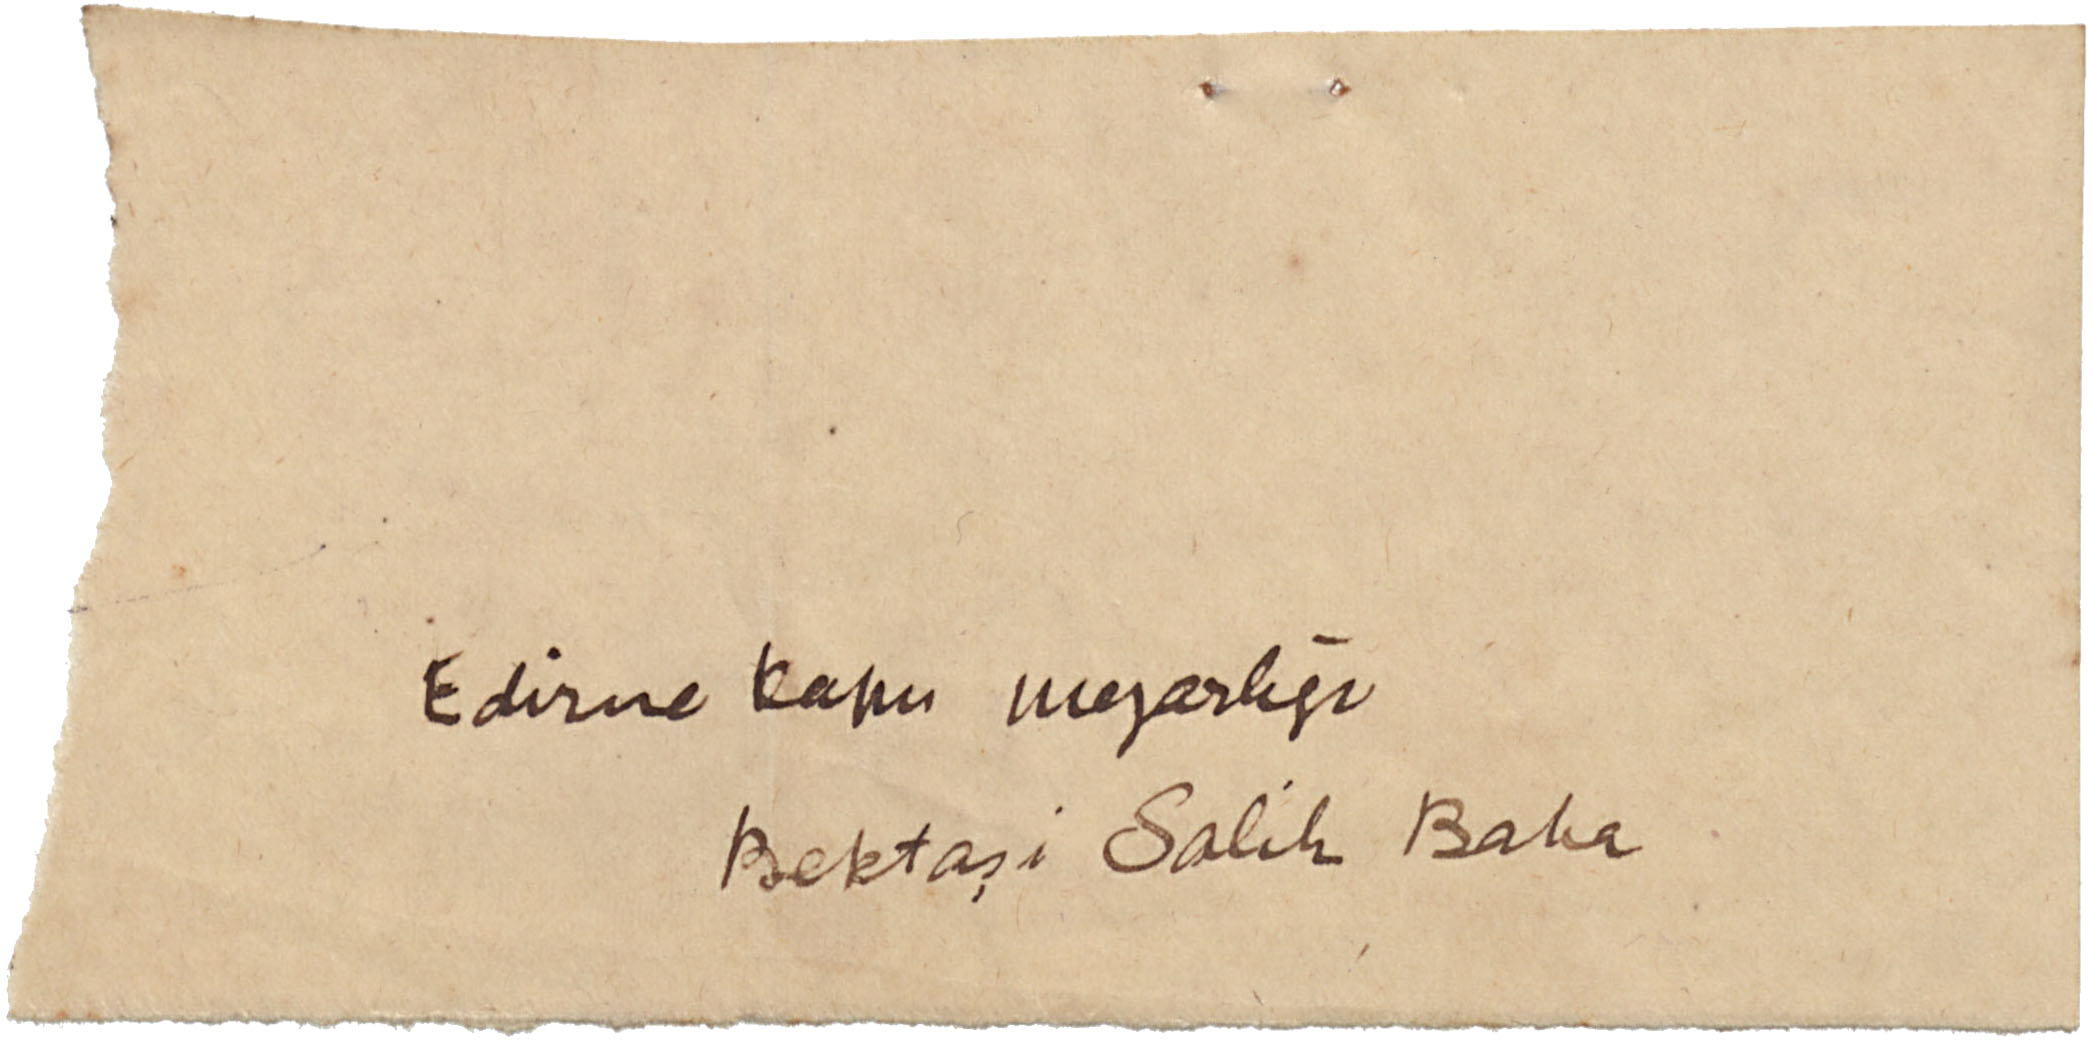 Edirne kapu mezarlığı
Bektaşi Salih Baba